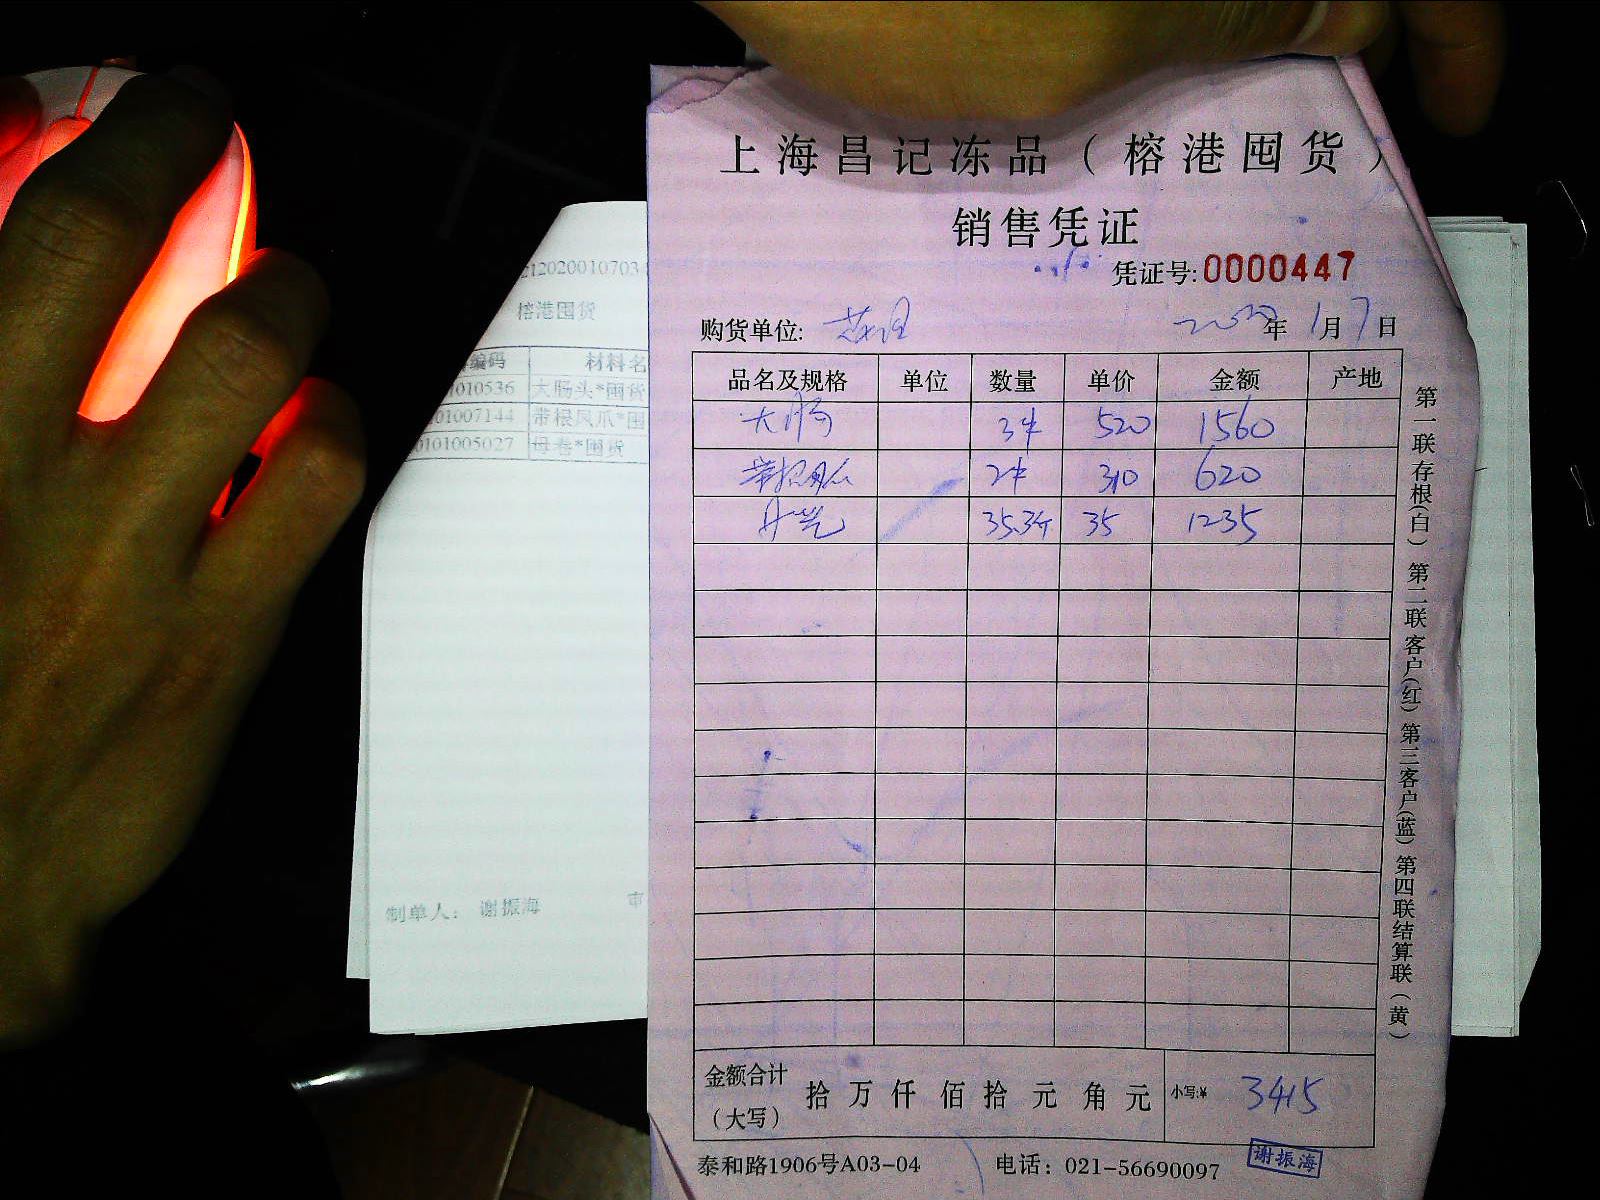 上海昌记冻品（榕港囤货）
销售凭证
凭证号:0000447
购货单位:
2020年1月7日
品名及规格 单位 数量 单价 金额 产地
大肠 3件 520 1560
带根凤爪 2件 310 620
母卷 35.3斤 35 1235
金额合计（大写） 拾万仟佰拾元角元 小写:¥ 3415
泰和路1906号A03-04 电话：021-56690097
谢振海
第一联存根(白) 第二联客户(红) 第三客户(蓝) 第四联结算联(黄)
212020010703
榕港囤货
编码 材料名
010536 大肠头*囤货
01007144 带根凤爪*囤
0101005027 母卷*囤货
制单人： 谢振海 审